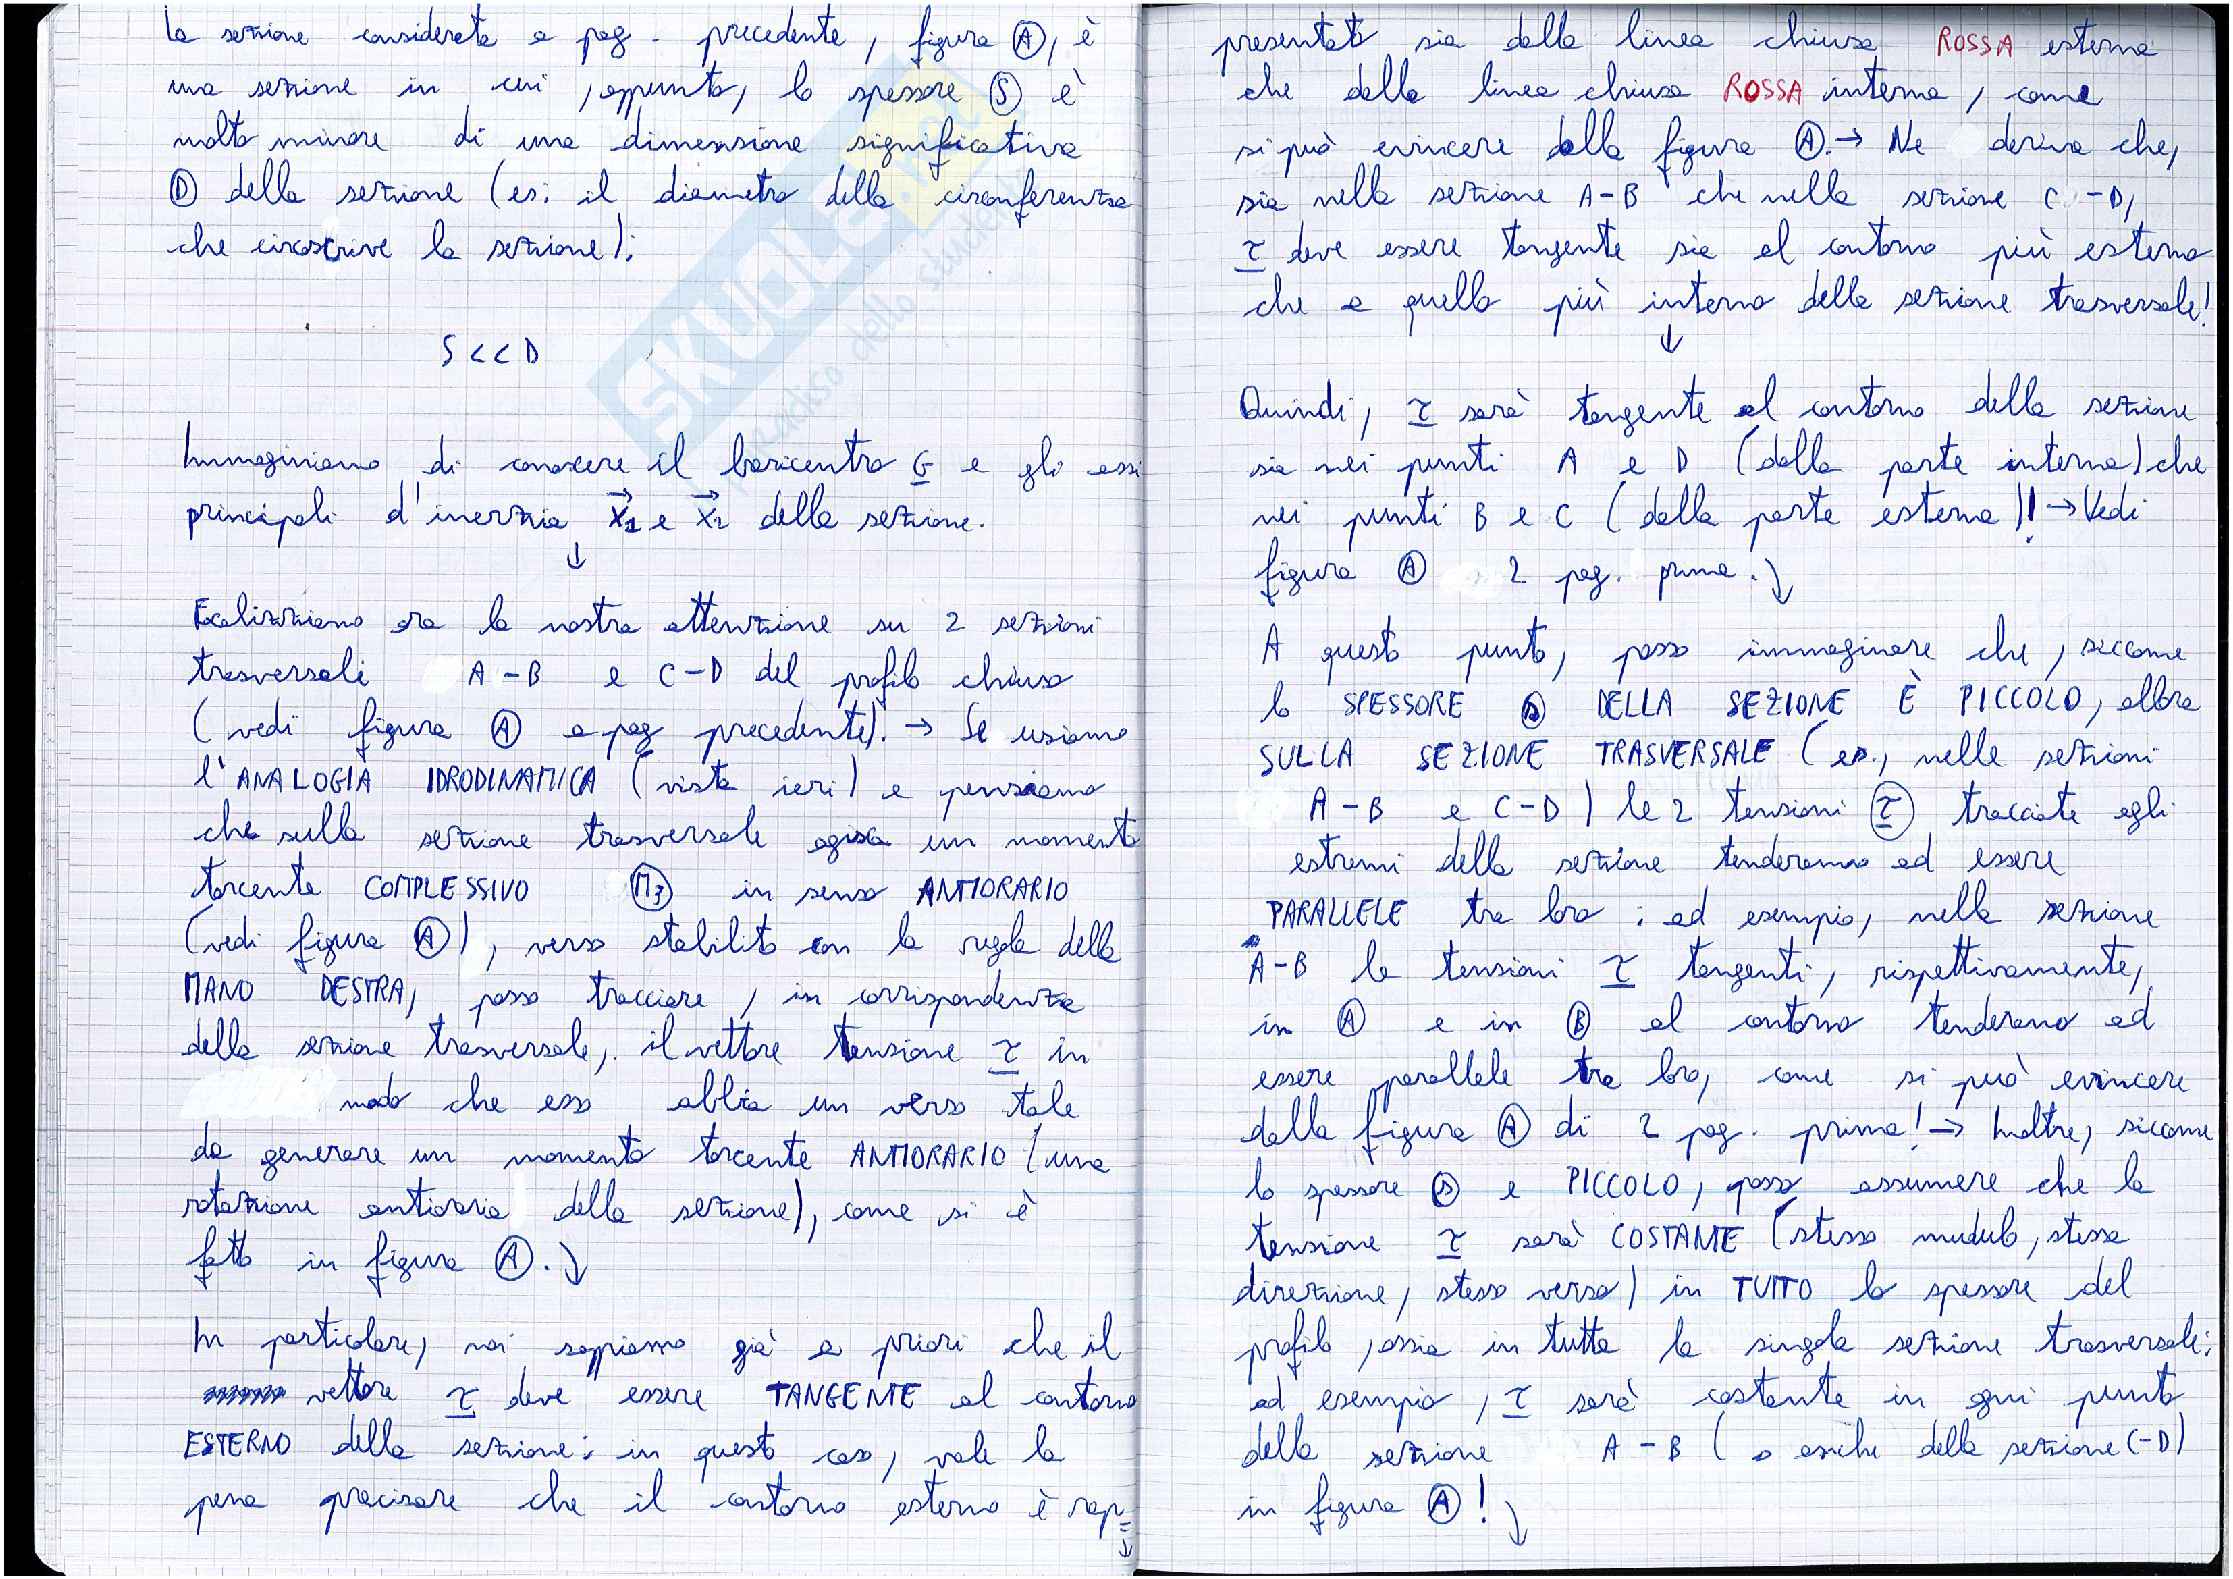 la sezione considerata a pag. precedente, figura Ⓐ, è
una sezione in cui, appunto, lo spessore Ⓢ è
molto minore di una dimensione significativa
Ⓓ della sezione (es: il diametro della circonferenza
che circoscrive la sezione):
S << D
Immaginiamo di conoscere il baricentro G e gli assi
principali d'inerzia X1 e X2 della sezione.
↓
Focalizziamo ora la nostra attenzione su 2 sezioni
trasversali A-B e C-D del profilo chiuso
(vedi figura Ⓐ a pag precedente). → Se usiamo
l'ANALOGIA IDRODINAMICA (vista ieri) e pensiamo
che sulla sezione trasversale agisca un momento
torcente COMPLESSIVO M3 in senso ANTIORARIO
(vedi figura Ⓐ), verso stabilito con la regola della
MANO DESTRA, posso tracciare, in corrispondenza
della sezione trasversale, il vettore tensione τ in
modo che esso abbia un verso tale
da generare un momento torcente ANTIORARIO (una
rotazione antioraria della sezione), come si è
fatto in figura Ⓐ. ↓
In particolare, noi sappiamo già a priori che il
vettore τ deve essere TANGENTE al contorno
ESTERNO della sezione: in questo caso, vale la
pena precisare che il contorno esterno è rap=
↓
presentato sia dalla linea chiusa ROSSA esterna
che dalla linea chiusa ROSSA interna, come
si può evincere dalla figura Ⓐ. → Ne deriva che,
sia nella sezione A-B che nella sezione C-D,
τ deve essere tangente sia al contorno più esterno
che a quello più interno della sezione trasversale!
↓
Quindi, τ sarà tangente al contorno della sezione
sia nei punti A e D (dalla parte interna) che
nei punti B e C (dalla parte esterna)! → Vedi
figura Ⓐ 2 pag. prima. ↓
A questo punto, posso immaginare che, siccome
lo SPESSORE ⓢ DELLA SEZIONE È PICCOLO, allora
SULLA SEZIONE TRASVERSALE (es., nelle sezioni
A-B e C-D) le 2 tensioni τ tracciate agli
estremi della sezione tenderanno ad essere
PARALLELE tra loro: ad esempio, nella sezione
A-B le tensioni τ tangenti, rispettivamente,
in Ⓐ e in Ⓑ al contorno tenderano ad
essere parallele tra loro, come si può evincere
dalla figura Ⓐ di 2 pag. prima! → Inoltre, siccome
lo spessore ⓢ e PICCOLO, posso assumere che la
tensione τ sarà COSTANTE (stesso mudulo, stessa
direzione, stesso verso) in TUTTO lo spessore del
profilo, ossia in tutta la singola sezione trasversale:
ad esempio, τ sarà costante in ogni punto
della sezione A-B (o anche della sezione C-D)
in figura Ⓐ! ↓
SKUOLA.net
paradiso dello studente